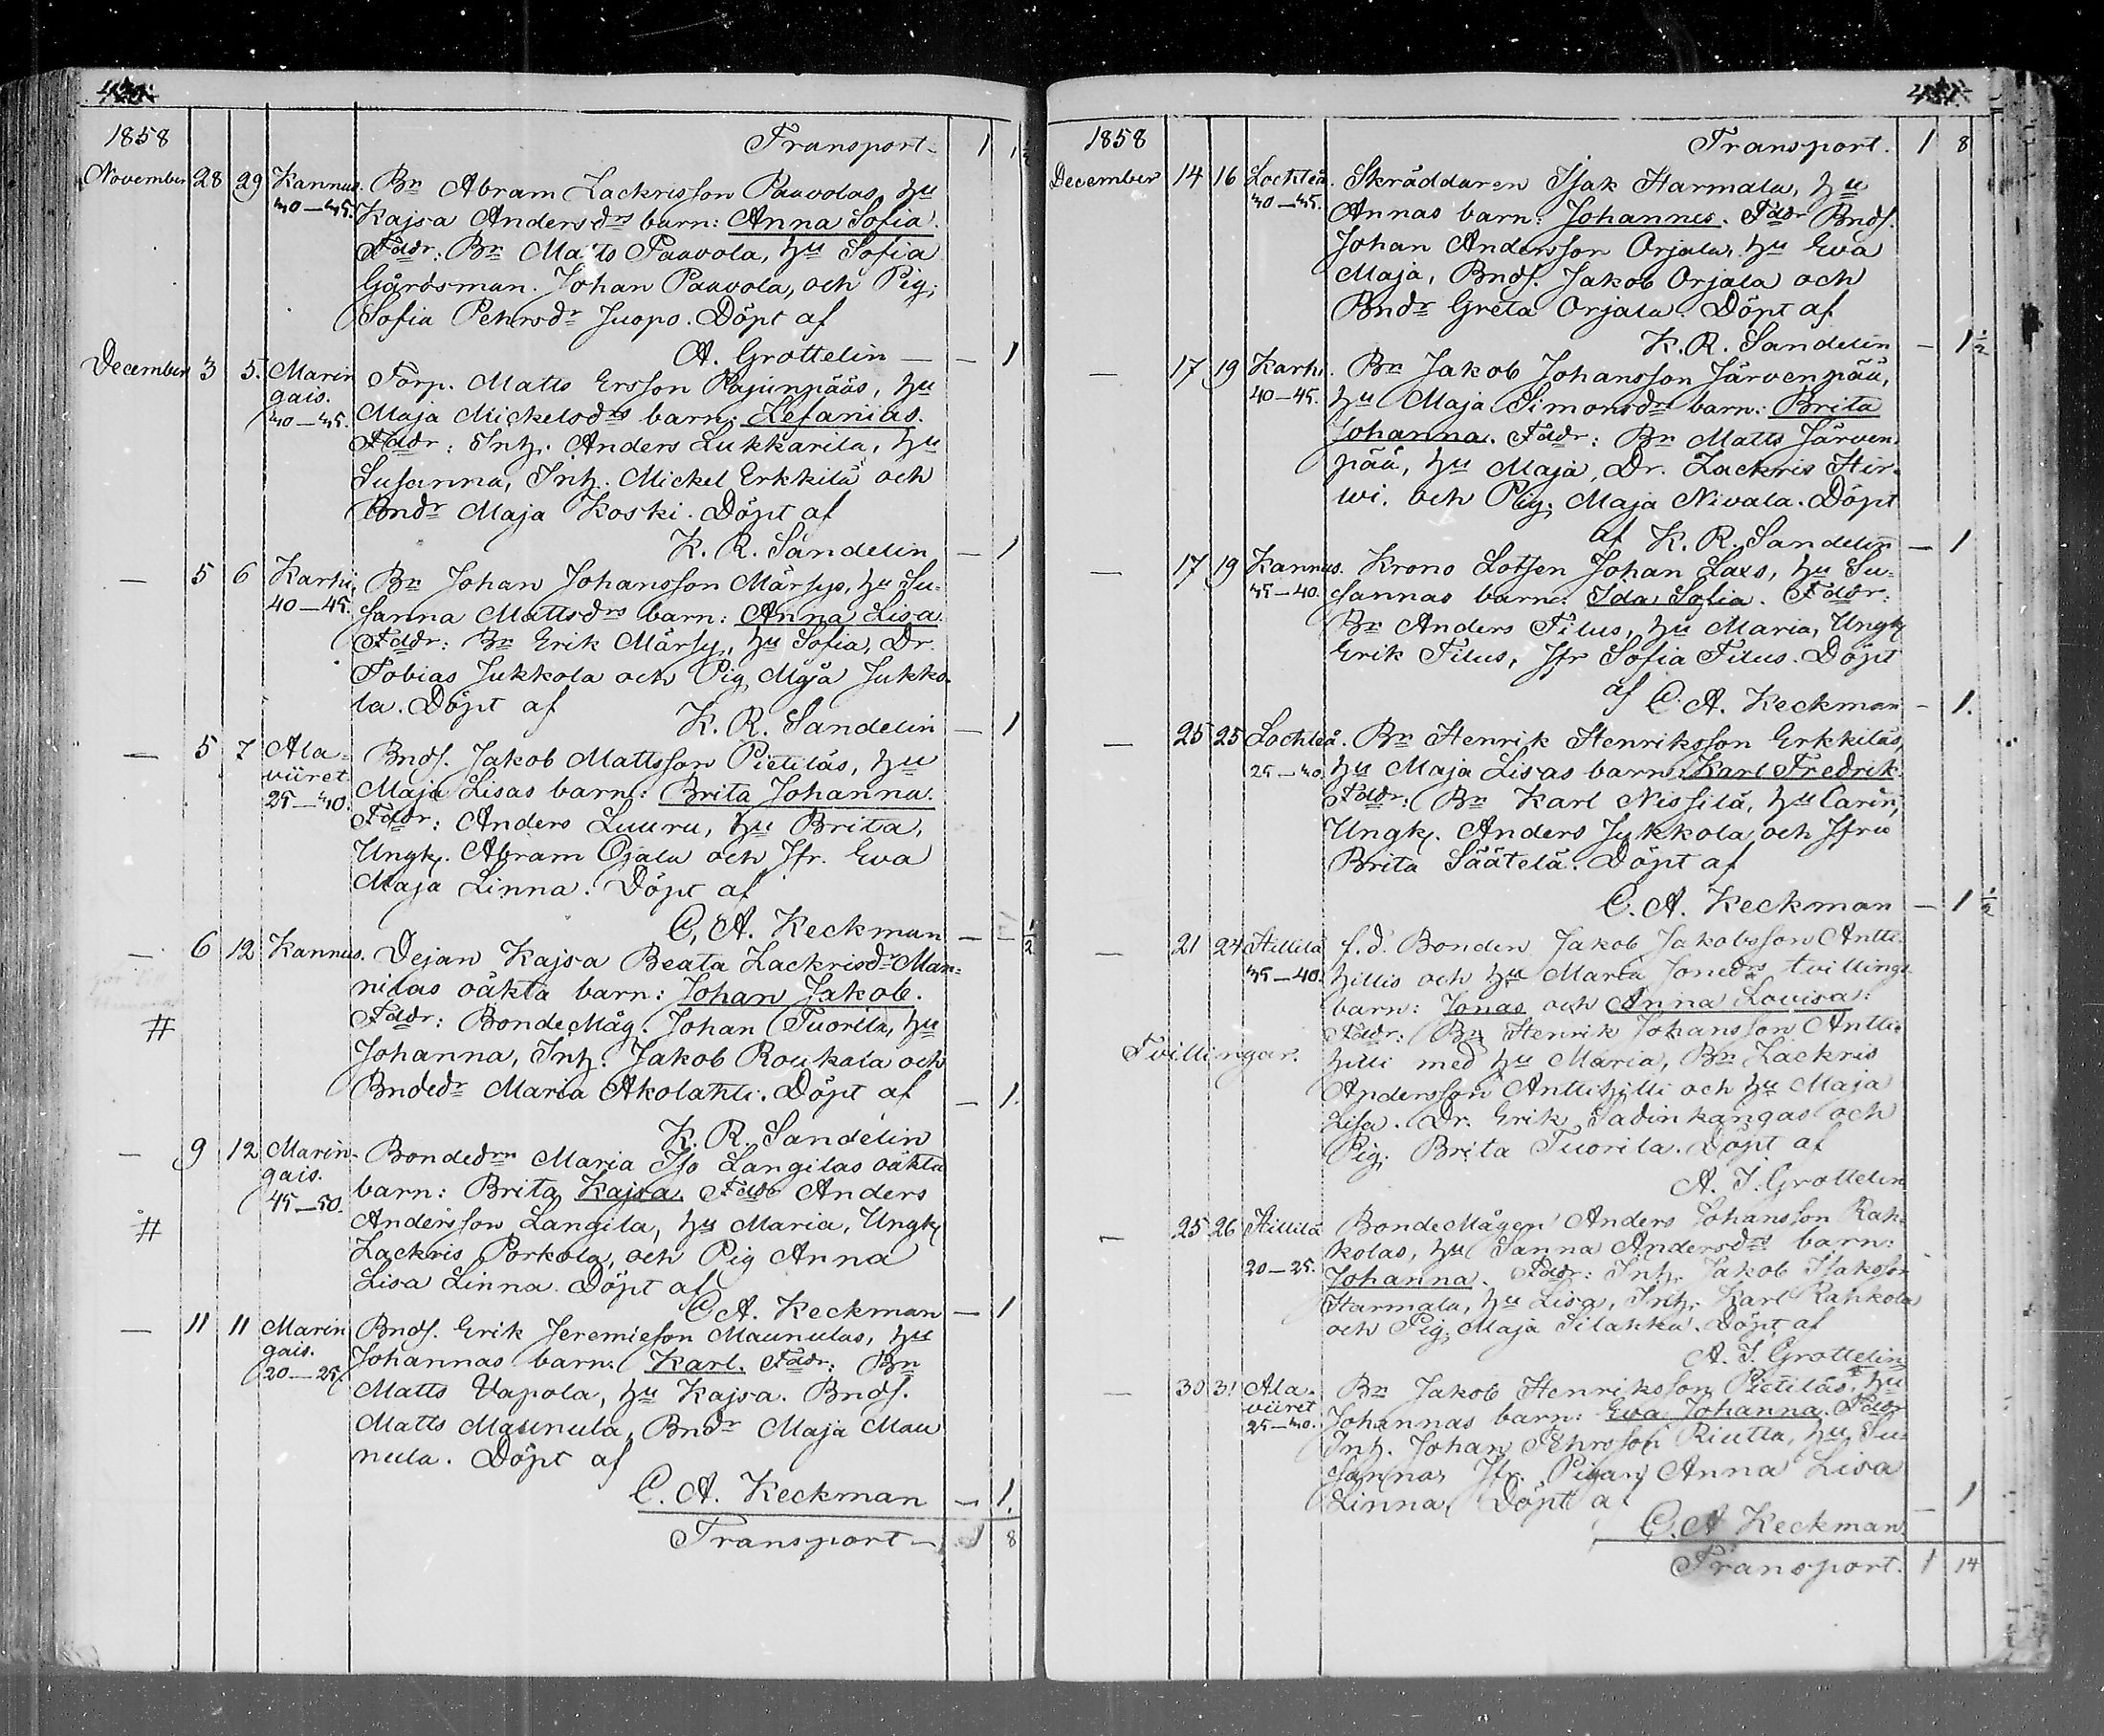 1858
Transport. 1 1 1/2
November 28 29 Kannus. Bn Abram Zackrisson Paavolas, hu
40—45. Kajsa Andersdrs barn: Anna Sofia.
Faddr: Bn Matts Paavola, hu Sofia
Gårdsman. Johan Paavola, och Pig.
Sofia Pehrsdr Juopo. Döpt af
A. Grottelin — — 1
December 3 5. Marin Torp. Matts Ersson Rajunpääs, hu
gais. Maja Mickelsdrs barn: Zefanias.
40—45. Faddr: Inh. Anders Lukkarila, hu
Susanna, Inh. Mickel Erkkilä och
Bndr Maja Koski. Döpt af
K. R. Sandelin — 1
— 5 6 Karhi, Bn Johan Johansson Märsys, hu Su-
40—45. sanna Mattsdrs barn: Anna Lisa.
Faddr: Bn Erik Märsy, hu Sofia, Dr.
Tobias Jukkola och Pig. Maja Jukko-
la. Döpt af
K. R. Sandelin — 1
— 5 7 Ala- Bnds. Jakob Mattsson Pietiläs, hu
viiret Maja Lisas barn: Brita Johanna.
25—40. Faddr: Anders Luuru, hu Brita,
Ungk. Abram Ojala och Jfr. Eva
Maja Linna. Döpt af
C. A. Keckman — — 1/2
— 6 12 Kannus. Dejan Kajsa Beata Zackrisdr Man-
nilas oäkta barn: Johan Jakob.
# Faddr: BondeMåg. Johan Tuorila, hu
Johanna, Inh. Jakob Roukala och
Bndedr Maria Akolahti. Döpt af — 1.
K. R. Sandelin
— 9 12 Marin- Bondedrn Maria Iso Langilas oäkta
gais. barn: Brita Kajsa. Faddr Anders
45—50. Andersson Langila, hu Maria, Ungk.
# Zackris Porkola, och Pig Anna
Lisa Linna. Döpt af
C. A. Keckman — 1
— 11 11 Marin Bnds. Erik Jeremiesson Maunulas, hu
gais. Johannas barn: Karl. Faddr: Bn
20—25. Matts Vapola, hu Kajsa. Bnds.
Matts Maunula, Bndr Maja Mau
nula. Döpt af
C. A. Keckman — 1.
Transport — 1 8
1858
Transport. 1 8
December 14 16 Lochteå. Skräddaren Isak Harmala, hu
40—45. Annas barn: Johannes. Faddr Bnds.
Johan Andersson Orjala, hu Eva
Maja, Bnds. Jakob Orjala och
Bndr Greta Orjala. Döpt af
K. R. Sandelin — 1 1/2
— 17 19 Karhi. Bn Jakob Johansson Järvenpää,
40—45. hu Maja Simonsdrs barn: Brita
Johanna. Faddr: Bn Matts Järven-
pää, hu Maja, Dr. Zackris Hir-
wi. och Pig. Maja Nivala. Döpt
af K. R. Sandelin — 1
— 17 19 Kannus. Krono Lotsen Johan Laxs, hu Su-
35—40. sannas barn: Ida Sofia. Faddr:
Bn Anders Filus, hu Maria, Ungk
Erik Filus, Jfr Sofia Filus. Döpt
af C. A. Keckman — 1.
— 25 25 Lochteå. Bn Henrik Henriksson Erkkiläs,
25—40. hu Maja Lisas barn: Karl Fredrik.
Faddr: Bn Karl Nissilä, hu Carin,
Ungk. Anders Jykkola och Jfru
Brita Säätelä. Döpt af
C. A. Keckman — 1 1/2
— 21 24 Hillilä f. d. Bonden Jakob Jakobsson Antti-
35—40. hillis och hu Maria Jonedrs tvillinge
barn: Jonas och Anna Lovisa:
Faddr: Bn Henrik Johansson Antti-
Tvillingar. hilli med hu Maria, Bn Zackris
Andersson Anttihilli och hu Maja
Lisa. Dr. Erik Sadinkangas och
Pig. Brita Tuorila. Döpt af
A. I. Grottelin
— 25 26 Hillilä BondeMågen Anders Johansson Rah-
kolas, hu Sanna Andersdrs barn:
20—25. Johanna. Faddr: Inh. Jakob Isaksson
Harmala, hu Lisa, Inh. Karl Rahkola
och Pig. Maja Silahka. Döpt af
A. I. Grottelin
— 30 31 Ala- Bn Jakob Henriksson Pietiläs, hu
viiret Johannas barn: Eva Johanna. Faddr
25—40. Inh. Johan Pehrsson Riutta, hu Su-
sanna, Jfr. Pigan Anna Lisa
Linna, Döpt af — 1
C. A Keckman.
Transport. 1 14